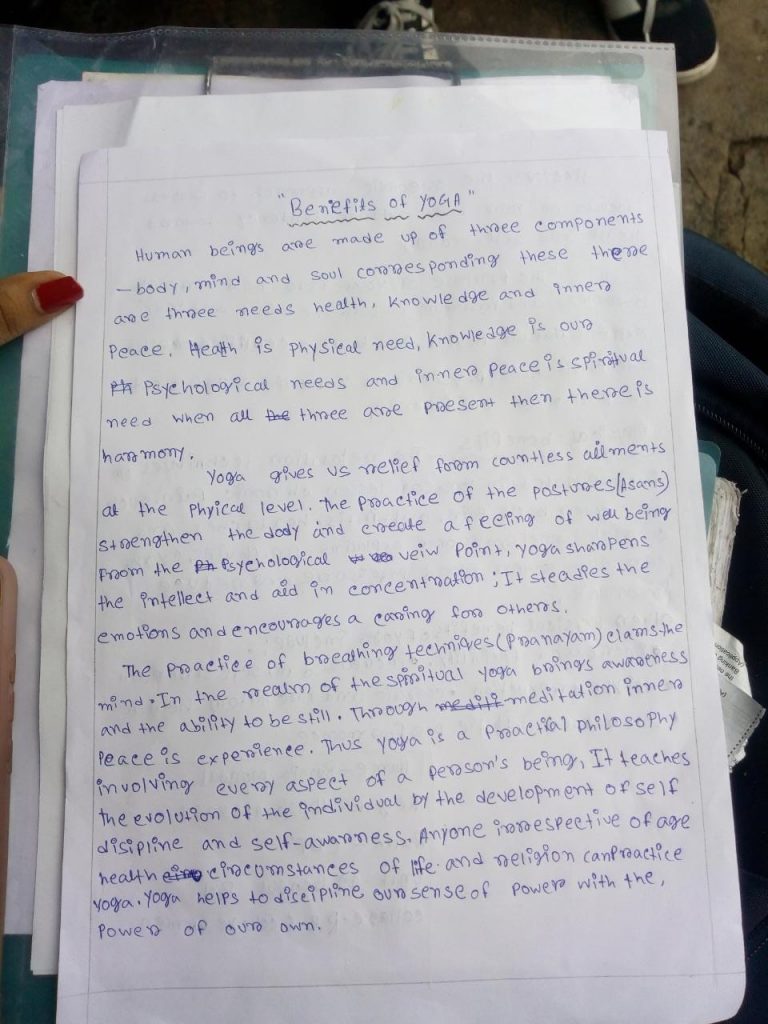 "Benefits of YOGA"
Human beings are made up of three components
- body, mind and soul corresponding these there
are three needs health, Knowledge and inner
Peace. Health is Physical need, Knowledge is our
Psychological needs and inner peace is spiritual
need when all the three are present then there is
harmony.
Yoga gives us relief form countless ailments
at the Phyical level. The Practice of the postures (Asans)
strengthen the dody and create a feeling of well being
From the Psychological veiw Point, yoga sharpens
the intellect and aid in concentration; It steadies the
emotions and encourages a caring for others.
The Practice of breathing techniqes (Pranayam) clams the
mind. In the realm of the spiritual yoga brings awareness
and the ability to be still. Through meditation inner
Peace is experience. Thus yoga is a Practial Philosophy
involving every aspect of a person's being, It teaches
the evolution of the individual by the development of self
disipline and self-awarness. Anyone irrespective of age
health circumstances of life and religion can practice
yoga. Yoga helps to discipline our sense of power with the,
Power of our own.